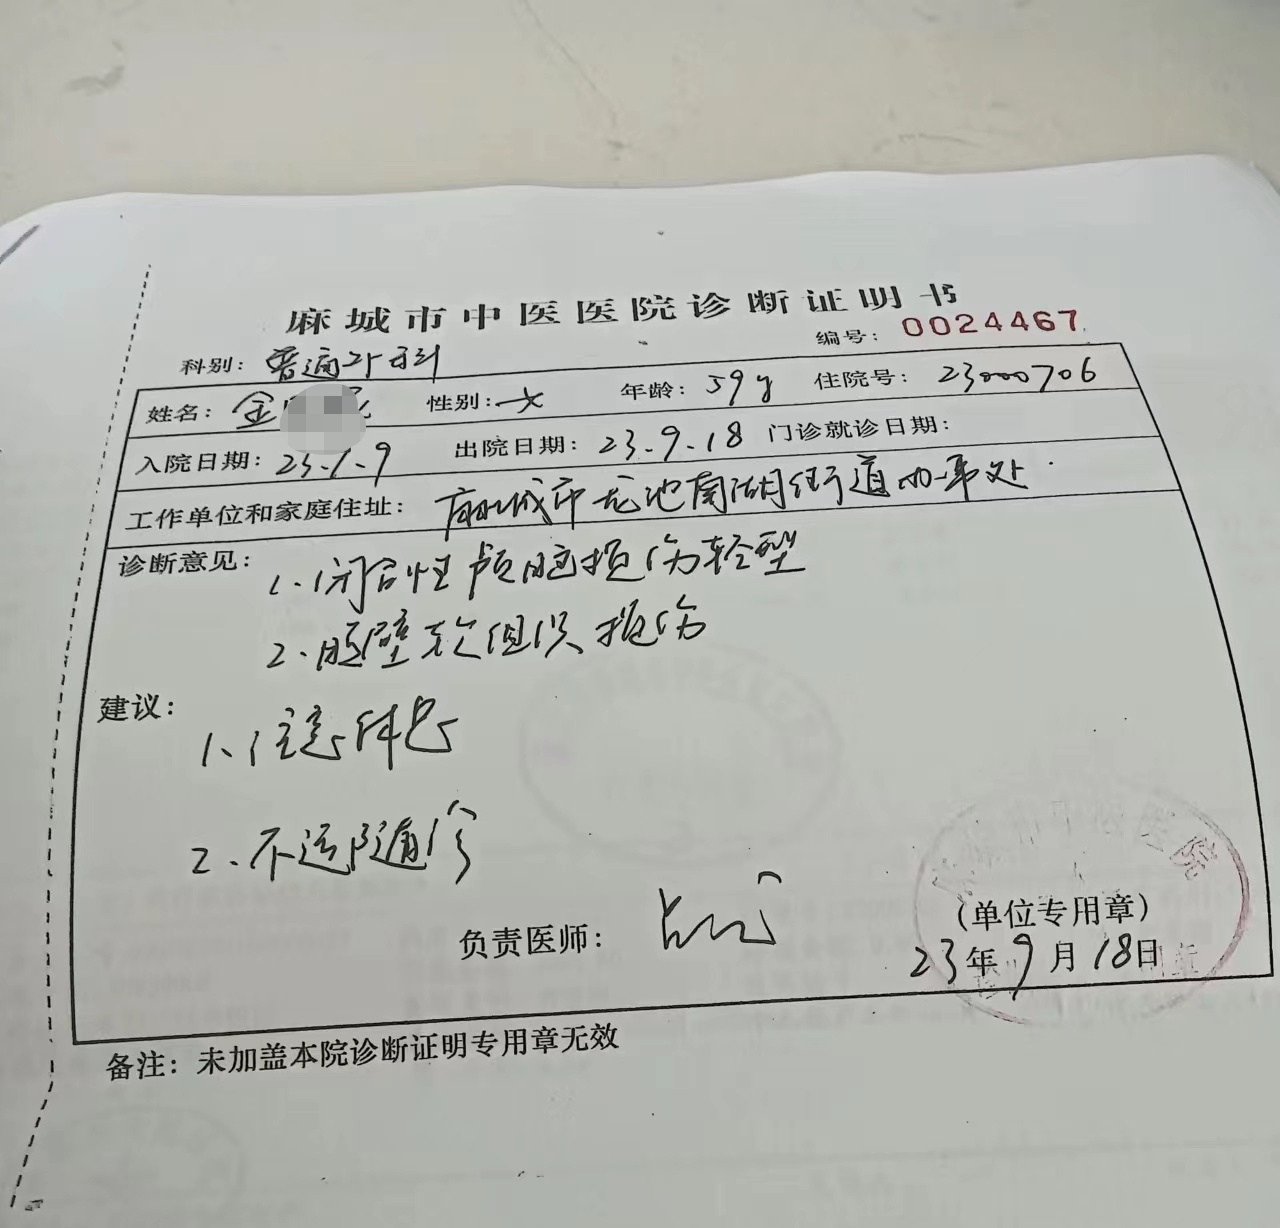 麻城市中医医院诊断证明书
编号：0024467
科别：普通外科
姓名：金 性别：女 年龄：59y 住院号：23000706
入院日期：23.1.9 出院日期：23.9.18 门诊就诊日期：
工作单位和家庭住址：麻城市龙池南湖街道办事处.
诊断意见：1.闭合性颅脑损伤轻型
2.腹壁软组织损伤
建议：
1、注意休息
2.不适随诊
负责医师：
(单位专用章)
23年9月18日
备注：未加盖本院诊断证明专用章无效